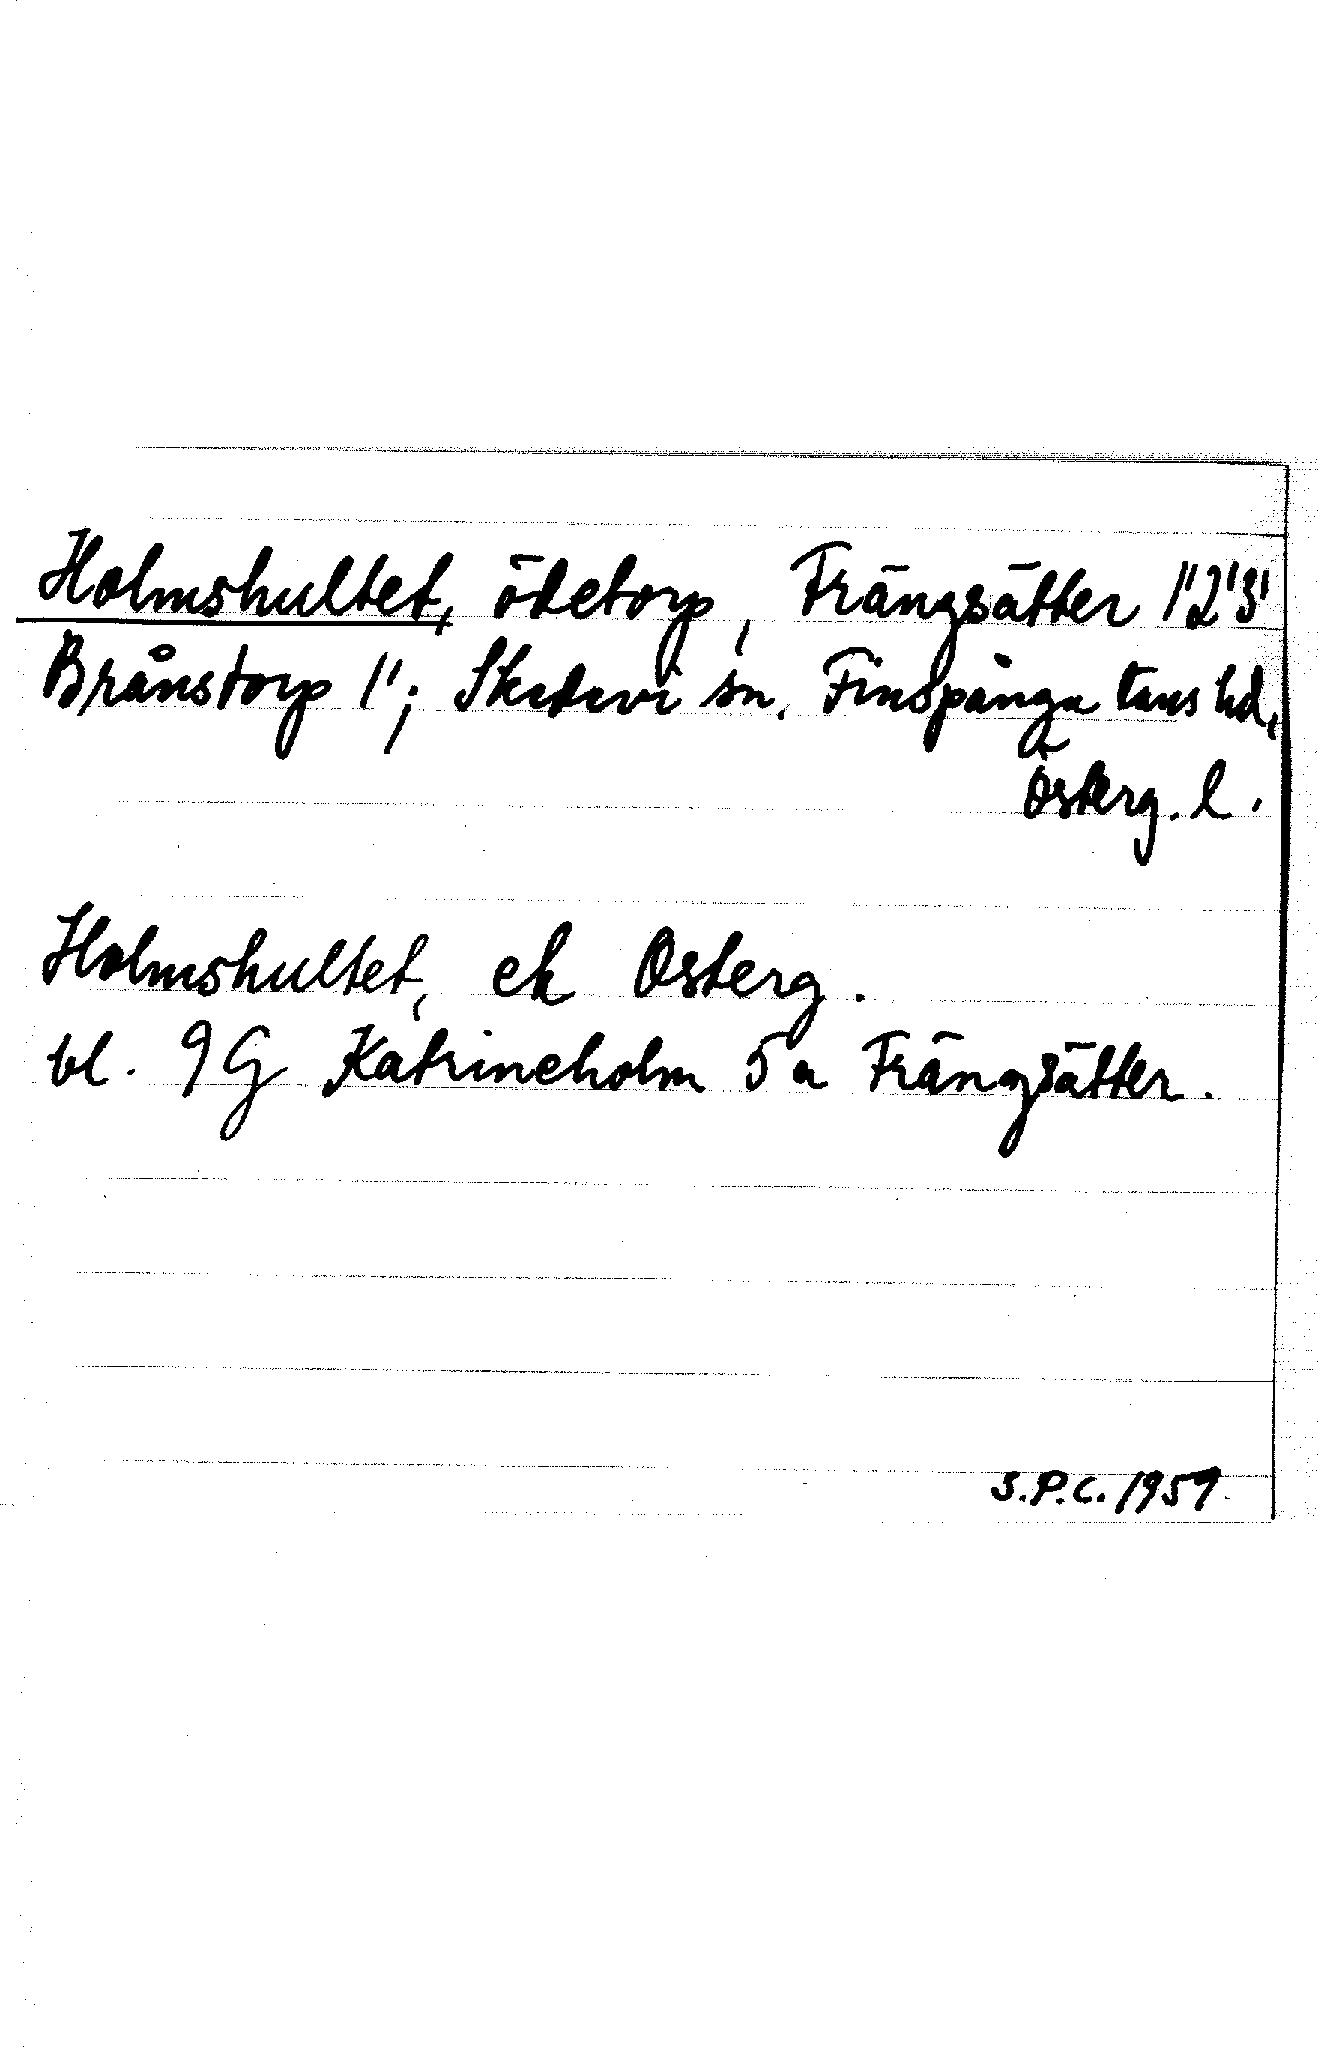 Holmshultet, ödetorp, Frängsätter 1'2'3'
Brånstorp 1'; Skedevi sn. Finspånga läns hd,
Österg. l.
Holmshultet, ek Österg.
bl. 9G Katrineholm 5a Frängsätter.
S.P.C. 1959